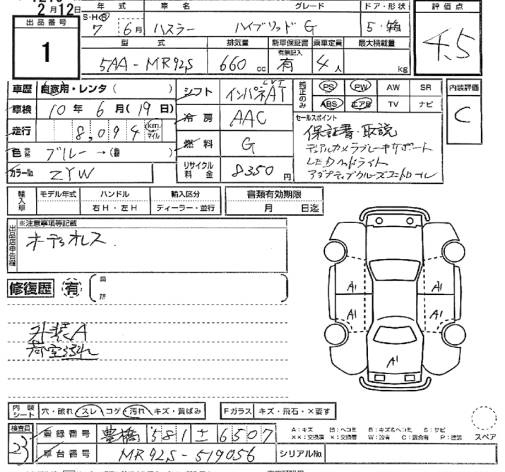 2月12日
出品番号
1
年式 車名 グレード ドア・形状 評価点
S・H・R
7年6月 ハスラー ハイブリッドG 5・箱
4.5
型式 排気量 新車保証書 乗車定員 最大積載量
5AA-MR92S 660cc 有 4人 kg
車歴 自家用・レンタ( )
車検 10年6月(19日)
走行 8,094 km マイル
色 ブルー→( )
カラーNo ZYW
シフト インパネAT
冷房 AAC
燃料 G
リサイクル料金 8350円
純正のみ PS PW AW SR
ABS エアB TV ナビ
内装評価
C
セールスポイント
保証書・取説
デュアルカメラブレーキサポート
LEDヘッドライト
アダプティブクルーズコントロール
輸入車 モデル年式 ハンドル 輸入区分
右H・左H ディーラー・並行
書類有効期限
月 日迄
出品店申告欄
※注意事項等記載
オーディオレス
修復歴 有
外装A
A1
A1 A1
A1 A1
内装シート 穴・破れ スレ コゲ 汚れ キズ・黄ばみ
Fガラス キズ・飛石・X要す
検査員
登録番号 豊橋 581 ± 6507
車台番号 MR92S-519056
シリアルNo
スペア